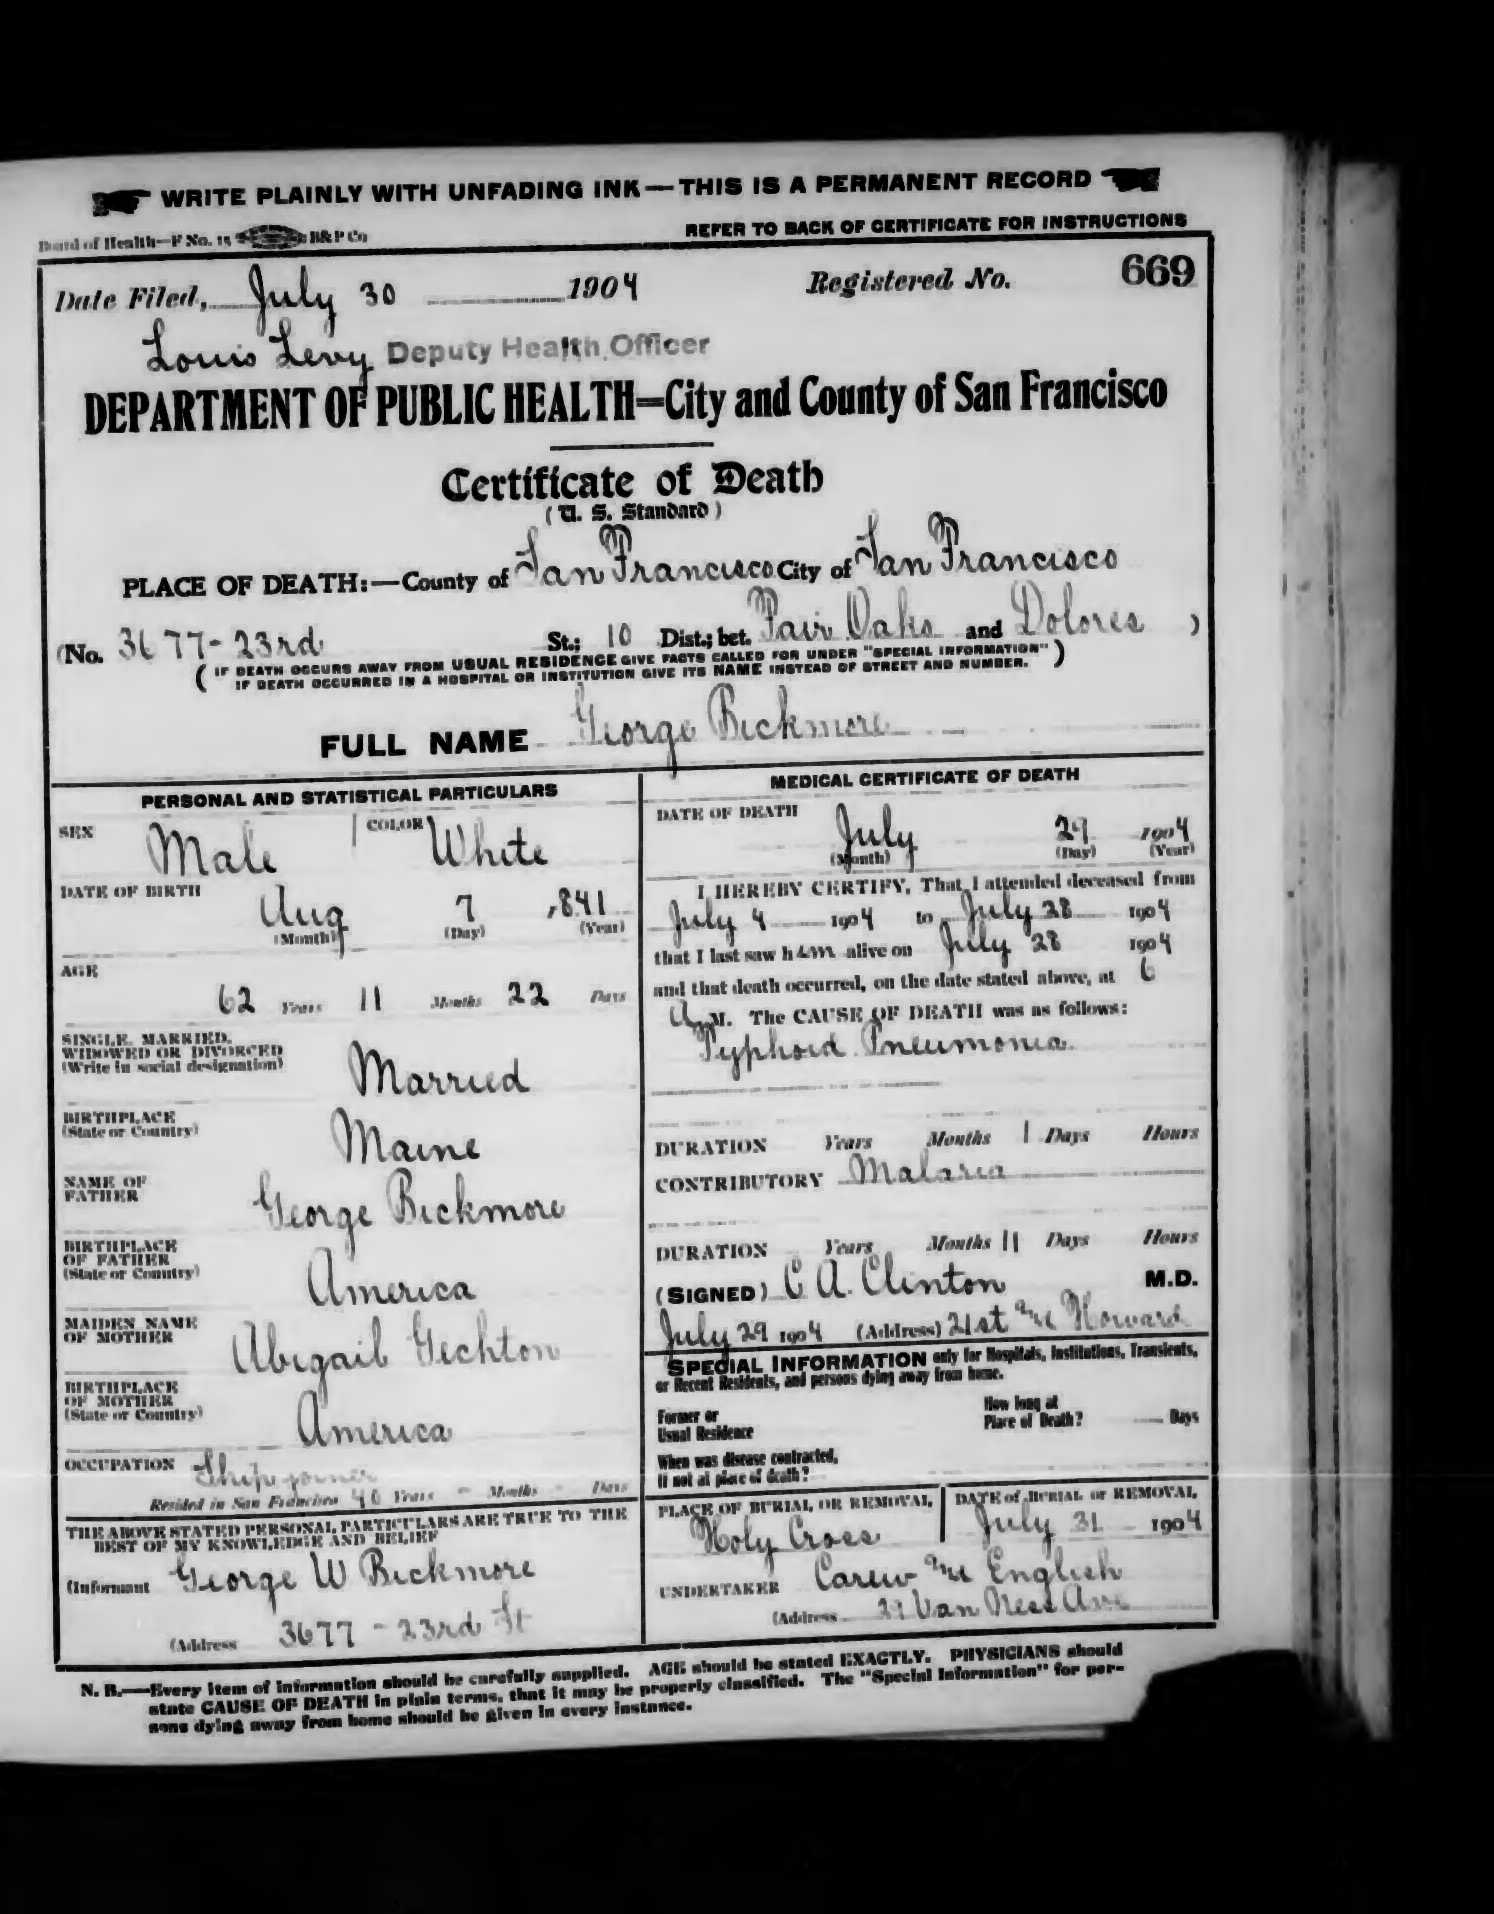 WRITE PLAINLY WITH UNFADING INK — THIS IS A PERMANENT RECORD
Board of Health—F No. 15 B&P Co
REFER TO BACK OF CERTIFICATE FOR INSTRUCTIONS
Date Filed, July 30 1904 Registered No. 669
Louis Levy Deputy Health Officer
DEPARTMENT OF PUBLIC HEALTH=City and County of San Francisco
Certificate of Death
(U. S. Standard)
PLACE OF DEATH:—County of San Francisco City of San Francisco
(No. 3677-23rd St.; 10 Dist.; bet. Fair Oaks and Dolores )
( IF DEATH OCCURS AWAY FROM USUAL RESIDENCE GIVE FACTS CALLED FOR UNDER "SPECIAL INFORMATION"
IF DEATH OCCURRED IN A HOSPITAL OR INSTITUTION GIVE ITS NAME INSTEAD OF STREET AND NUMBER. )
FULL NAME George Bickmore
PERSONAL AND STATISTICAL PARTICULARS
SEX Male COLOR White
DATE OF BIRTH
Aug 7 1841
(Month) (Day) (Year)
AGE
62 Years 11 Months 22 Days
SINGLE, MARRIED,
WIDOWED OR DIVORCED
(Write in social designation)
Married
BIRTHPLACE
(State or Country)
Maine
NAME OF
FATHER
George Bickmore
BIRTHPLACE
OF FATHER
(State or Country)
America
MAIDEN NAME
OF MOTHER
Abigail
BIRTHPLACE
OF MOTHER
(State or Country)
America
OCCUPATION Ship joiner
Resided in San Francisco 40 Years - Months - Days
THE ABOVE STATED PERSONAL PARTICULARS ARE TRUE TO THE
BEST OF MY KNOWLEDGE AND BELIEF
(Informant George W Bickmore
(Address 3677 - 23rd St
MEDICAL CERTIFICATE OF DEATH
DATE OF DEATH
July 29 1904
(Month) (Day) (Year)
I HEREBY CERTIFY, That I attended deceased from
July 4 1904 to July 28 1904
that I last saw him alive on July 28 1904
and that death occurred, on the date stated above, at 6
A M. The CAUSE OF DEATH was as follows:
Typhoid Pneumonia
DURATION Years Months 1 Days Hours
CONTRIBUTORY Malaria
DURATION Years Months 11 Days Hours
(SIGNED) C A. Clinton M.D.
July 29 1904 (Address) 21st and Howard
SPECIAL INFORMATION only for Hospitals, Institutions, Transients,
or Recent Residents, and persons dying away from home.
Former or
Usual Residence
How long at
Place of Death? Days
When was disease contracted,
If not at place of death?
PLACE OF BURIAL OR REMOVAL
Holy Cross
DATE of BURIAL or REMOVAL
July 31 1904
UNDERTAKER Carew and English
(Address 29 Van Ness Ave
N. B.—Every item of information should be carefully supplied. AGE should be stated EXACTLY. PHYSICIANS should
state CAUSE OF DEATH in plain terms, that it may be properly classified. The "Special Information" for per-
sons dying away from home should be given in every instance.